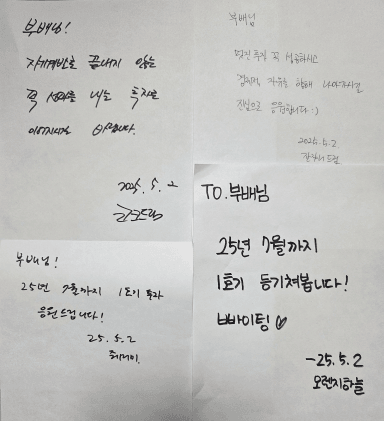 부배님!
자기계발로 끝내지 않는
꼭 성과를 내는 투자로
이어지시길 바랍니다.
2025. 5. 2
부배님
멋진 투자 꼭 성공하시고
경제적 자유를 향해 나아가시길
진심으로 응원합니다 :)
2025. 5. 2
부배님!
25년 7월까지 1호기 투자
응원드립니다!
25. 5. 2
TO. 부배님
25년 7월까지
1호기 등기쳐봅니다!
빠이팅♡
- 25. 5. 2
오렌지하늘